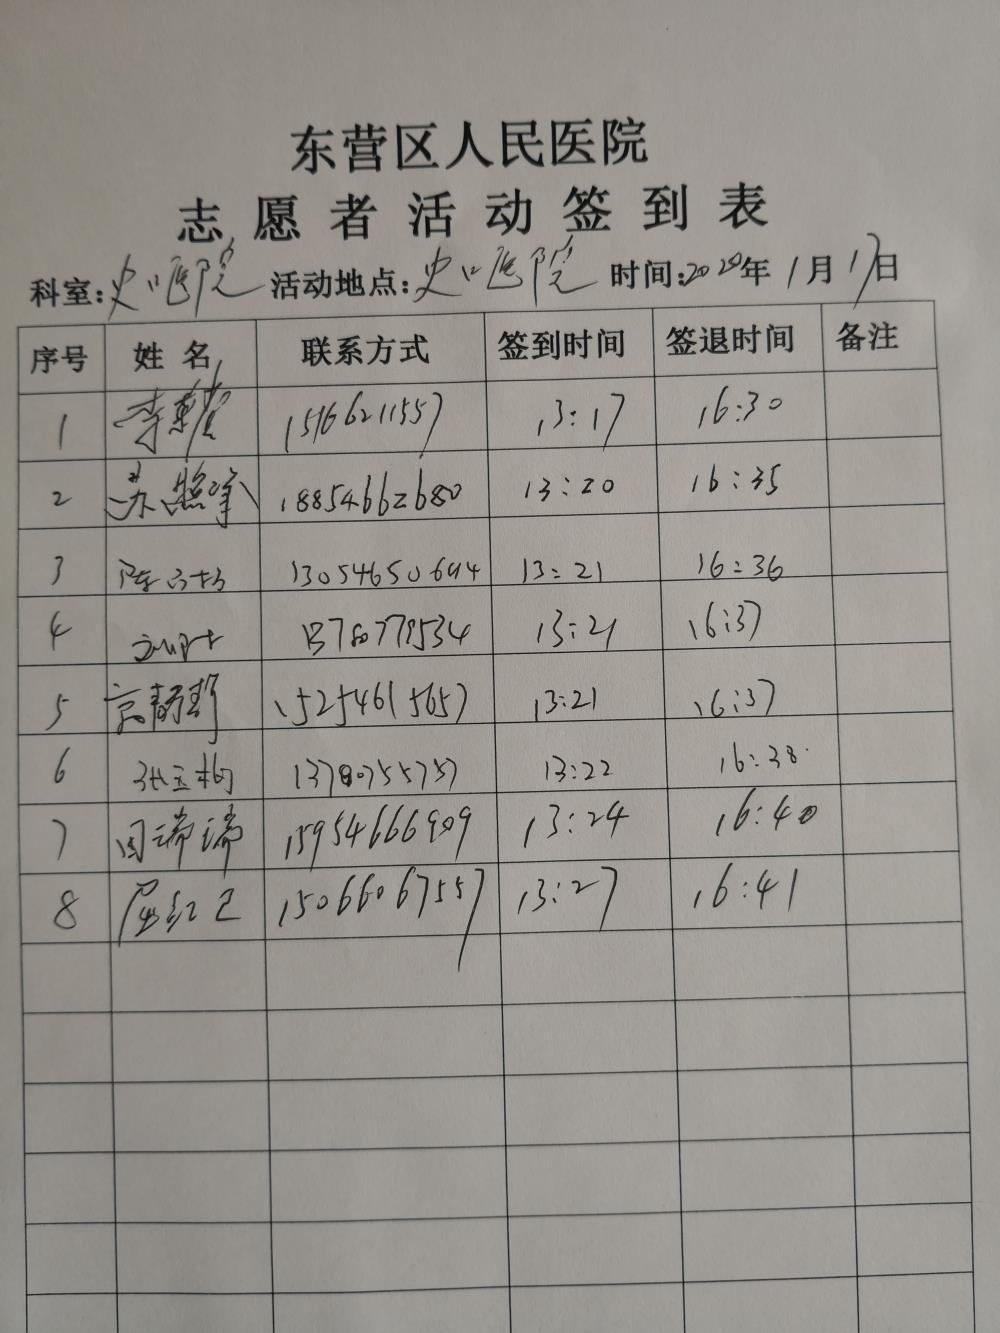 东营区人民医院
志愿者活动签到表
科室:史口医院 活动地点:史口医院 时间:2020年1月17日
序号 姓名 联系方式 签到时间 签退时间 备注
1 李 15166211557 13:17 16:30
2 苏照峰 18854662680 13:20 16:35
3 13054650694 13:21 16:36
4 13:21 16:37
5 15254615657 13:21 16:37
6 张玉梅 13780755757 13:22 16:38
7 周瑞瑞 15954666909 13:24 16:40
8 屈红卫 15066067557 13:27 16:41